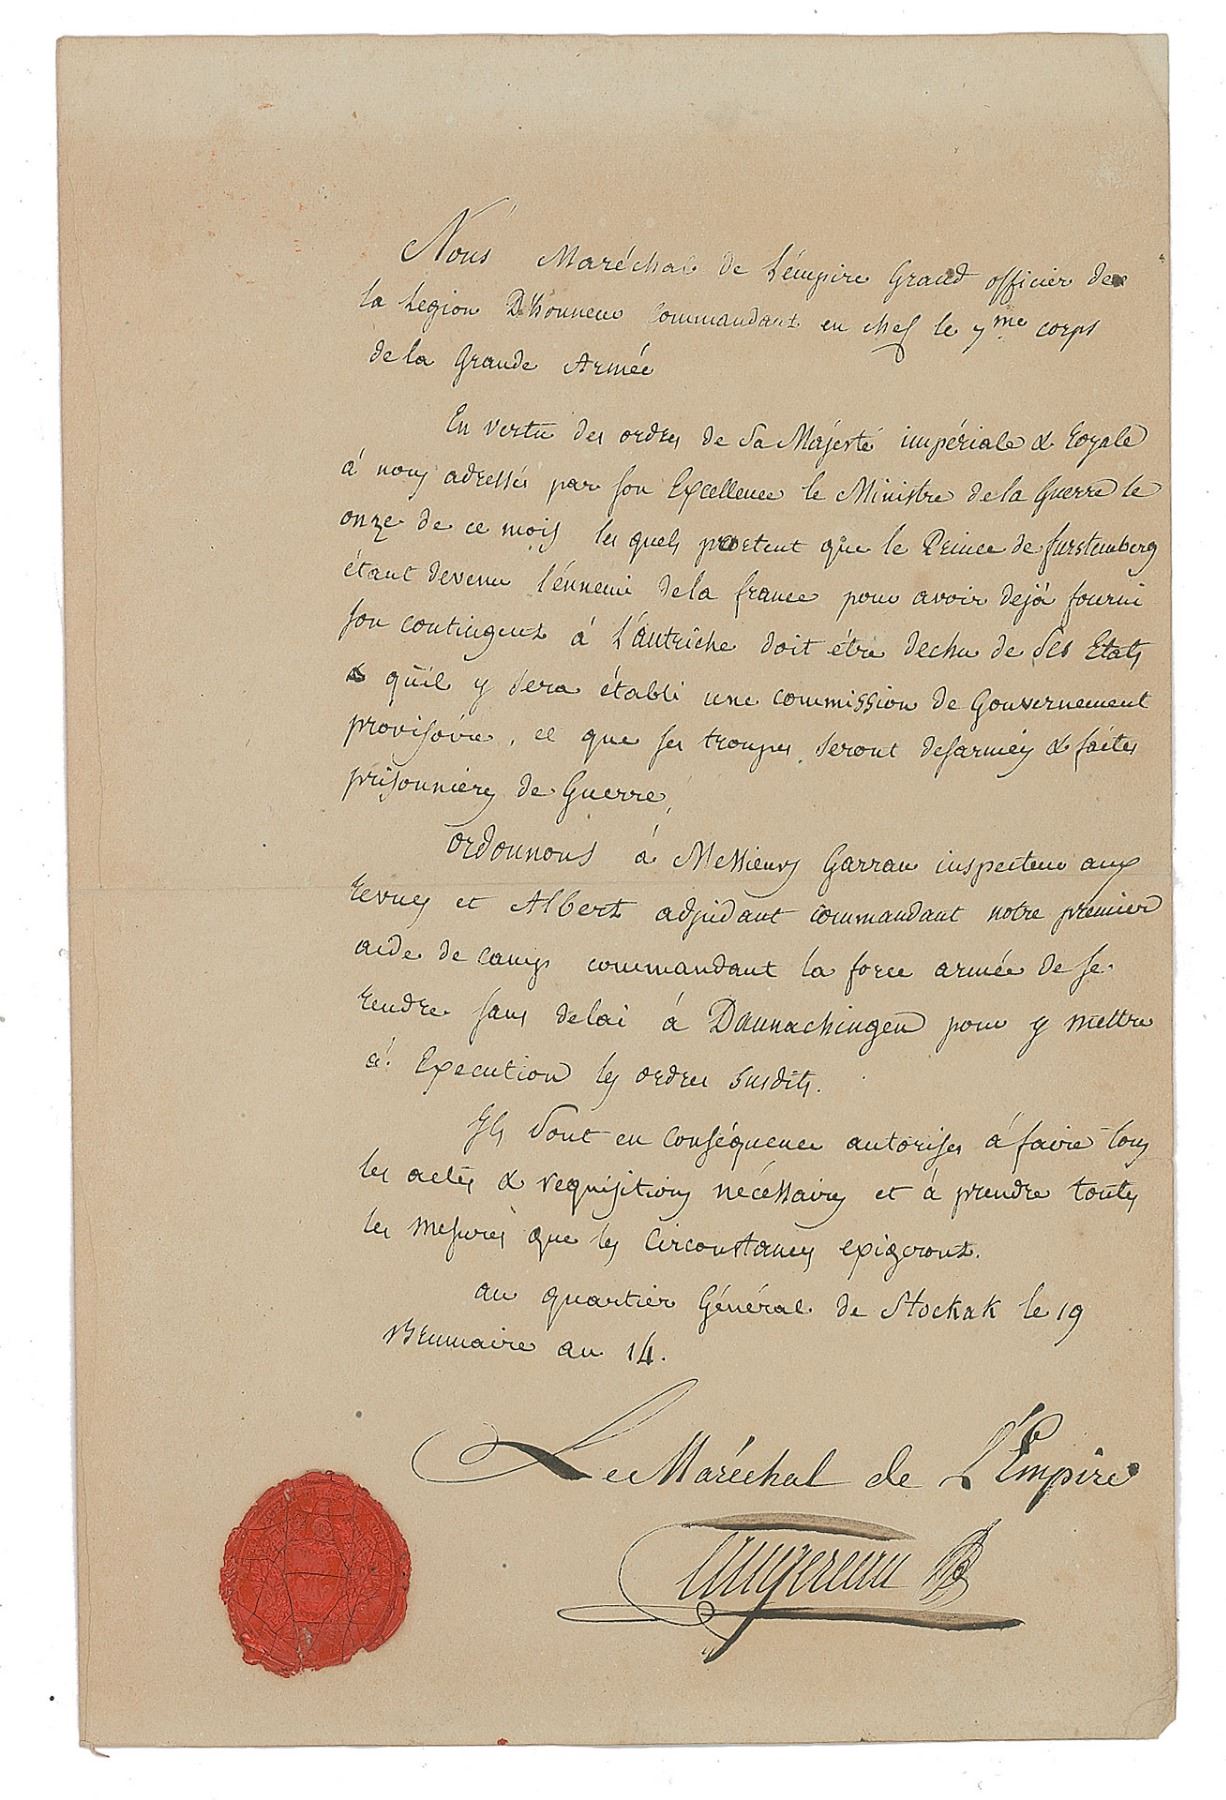 Nous Maréchal de L'émpire Grand officier de
la Legion D'honneur Commandant en chef le 7me corps
de la Grande Armée
En vertu des ordres de Sa Majesté impériale & royale
á nous adressés par son Excellence le Ministre de la Guerre le
onze de ce mois les quels portent que le Prince de furstemberg
étant devenu l'énnemi de la france pour avoir dejà fourni
son contingent á L'autriche doit étre dechu de Ses Etats
& qu'il y sera établi une commission de Gouvernement
provisoire, et que ses troupes seront desarmés & faites
prisonniers de Guerre,
Ordonnons á Messieurs Garrau inspecteur aux
revues et Albert adjudant commandant notre premier
aide de camp commandant la force armée de se
rendre sans delai á Daunachingen pour y mettre
á Execution les ordres susdits.
Ils sont en conséquence autorisés á faire tous
les actes & requisitions nécessaires et á prendre toutes
les mesures que les Circonstances exigeront.
au quartier Général de Stockak le 19
Brumaire an 14.
Le Maréchal de L'Empire
Augereau